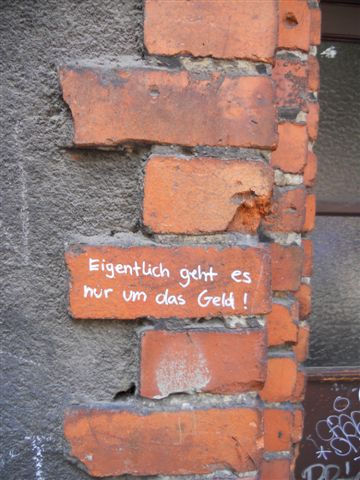 Eigentlich geht es
nur um das Geld!